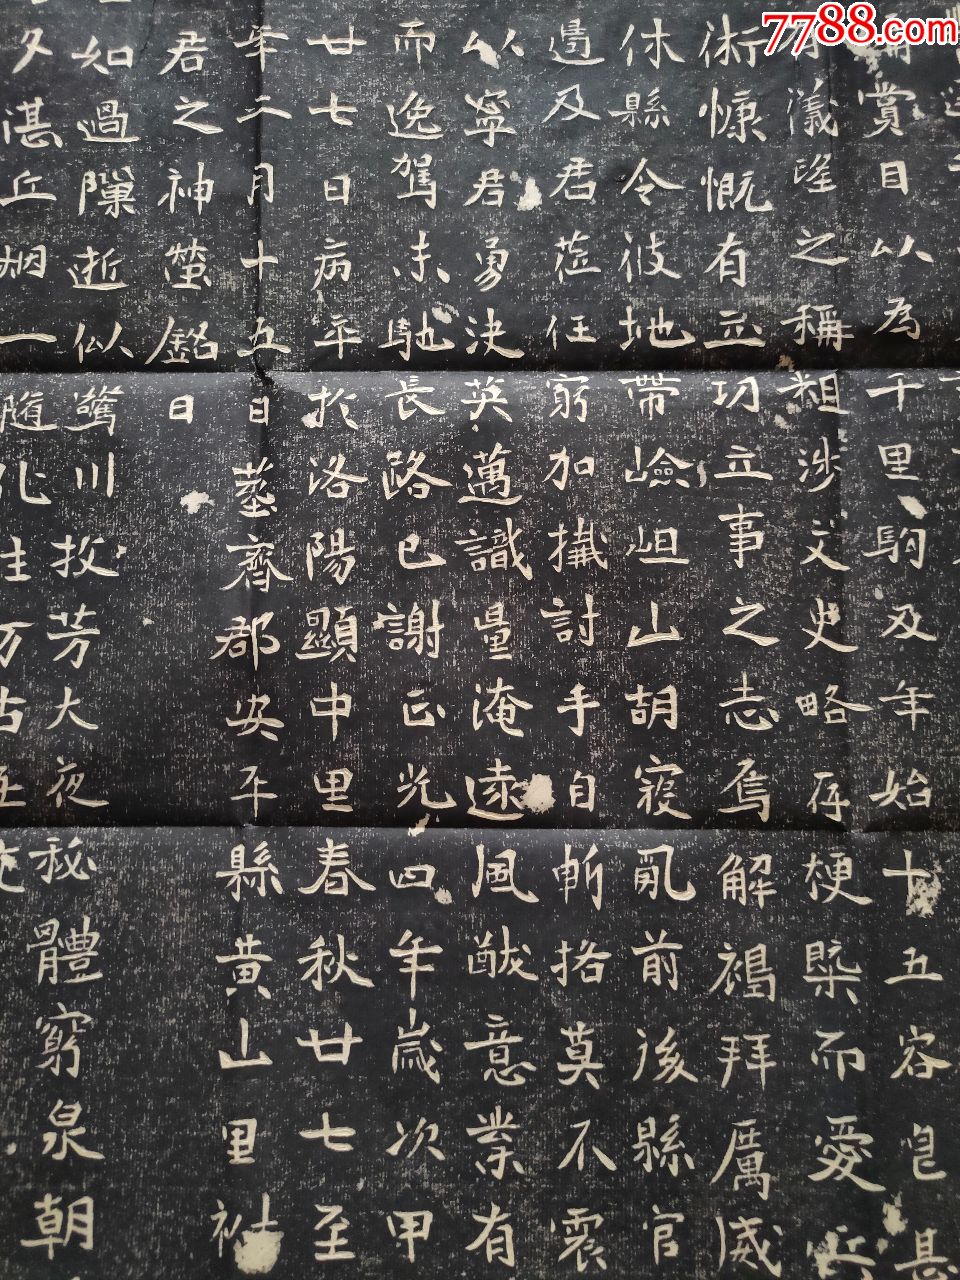 7788.com
賞目以為千里駒及年始十五容皃甚
儀隆之稱粗涉文史略存梗槩而愛兵
術慷慨有立功立事之志焉解褐拜厲威
休縣令彼地帶嶮岨山胡寇亂前後縣官
邊及君莅任窮加擒討手自斬挌莫不震
以寧君勇決英邁識量淹遠風猷意業有
而逸駕未馳長路已謝正光四年歲次甲
廿七日病卒於洛陽顯中里春秋廿七至
年二月十五日葬齊郡安平縣黃山里
君之神塋銘曰
如過隟逝似驚川芳大夜秘體窮泉朝
夕湛丘烟一隨化往万古